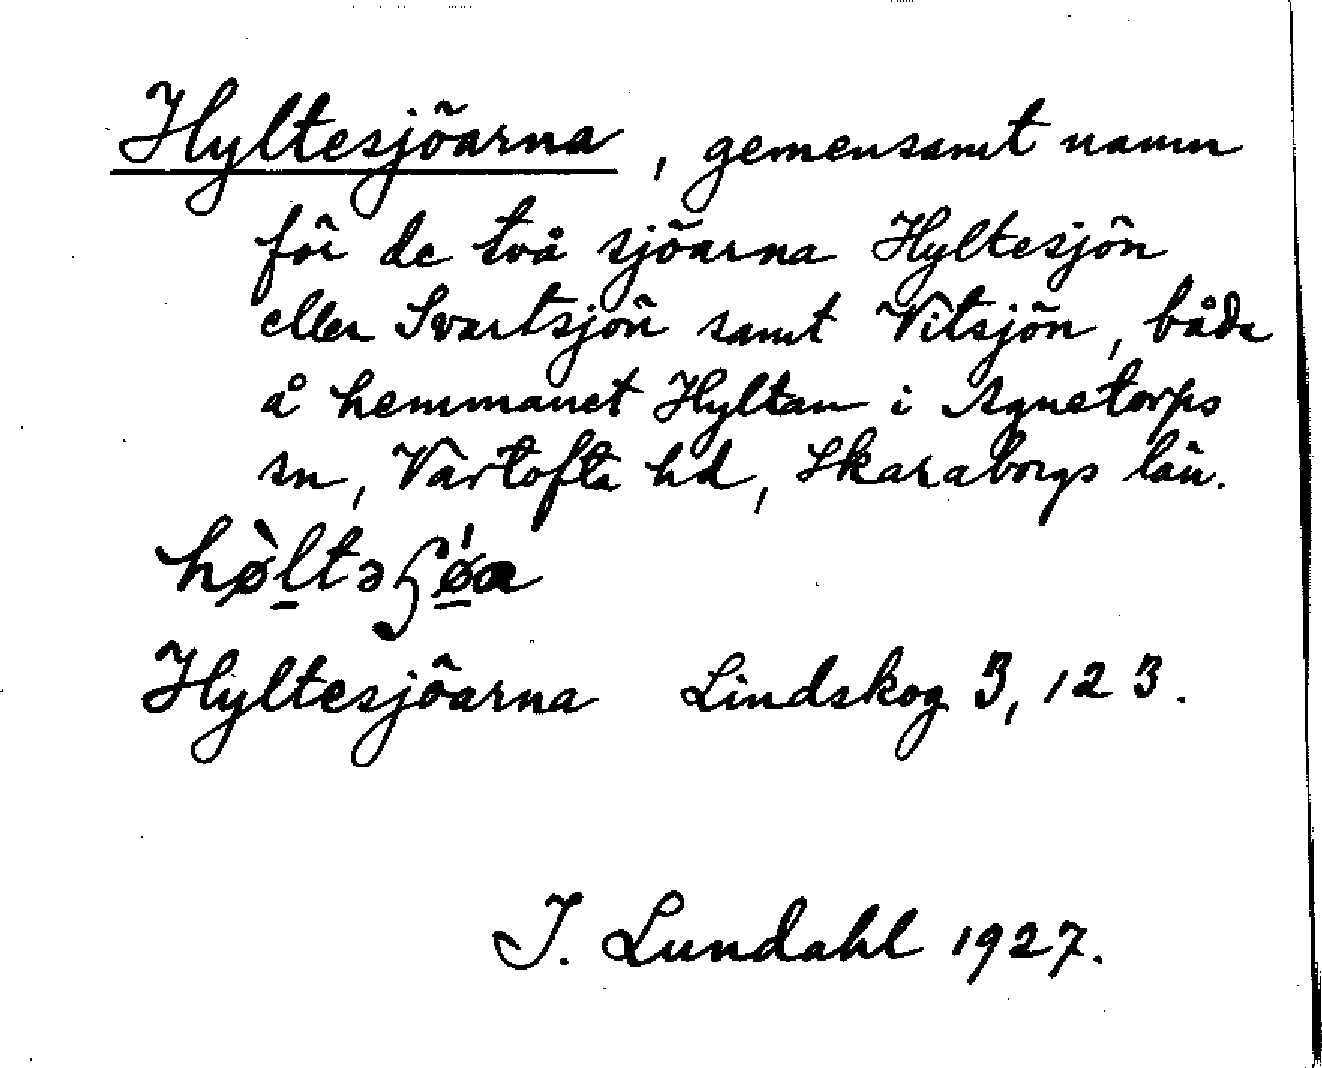 Hyltesjöarna, gemensamt namn
för de två sjöarna Hyltesjön
eller Svartsjön samt Vitsjön, båda
å hemmanet Hyltan i Agnetorps
sn, Vartofta hd, Skaraborgs län.
Hyltesjöarna Lindskog 3, 123.
I. Lundahl 1927.